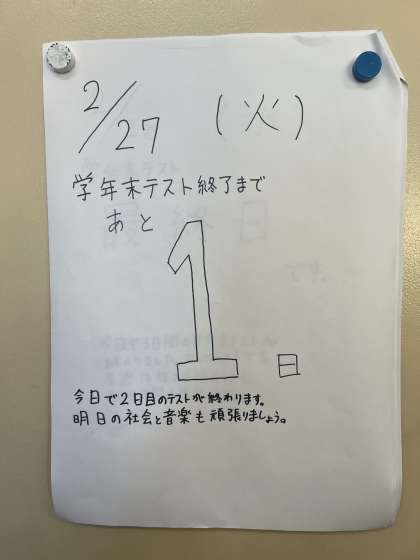 2/27 (火)
学年末テスト終了まで
あと
1日
今日で2日目のテストが終わります。
明日の社会と音楽も頑張りましょう。